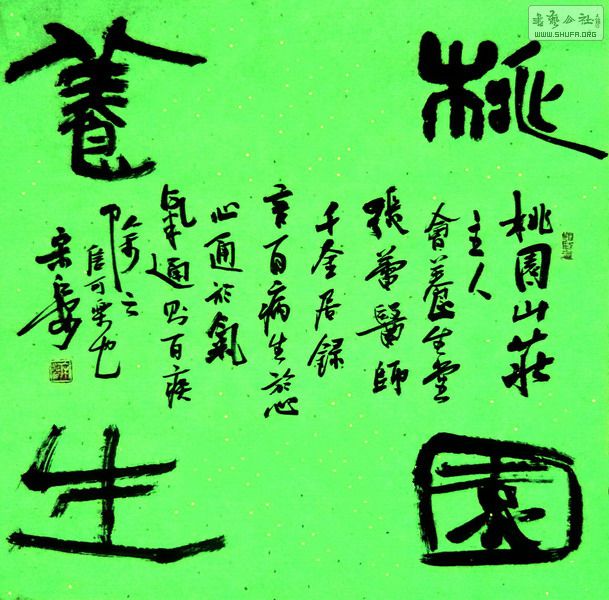 桃園
養生
桃園山莊
主人
會養生堂
張蕾醫師
千金居錄
言百病生於心
心通於氣
氣通則百疾
之
可樂也
书艺公社
WWW.SHUFA.ORG